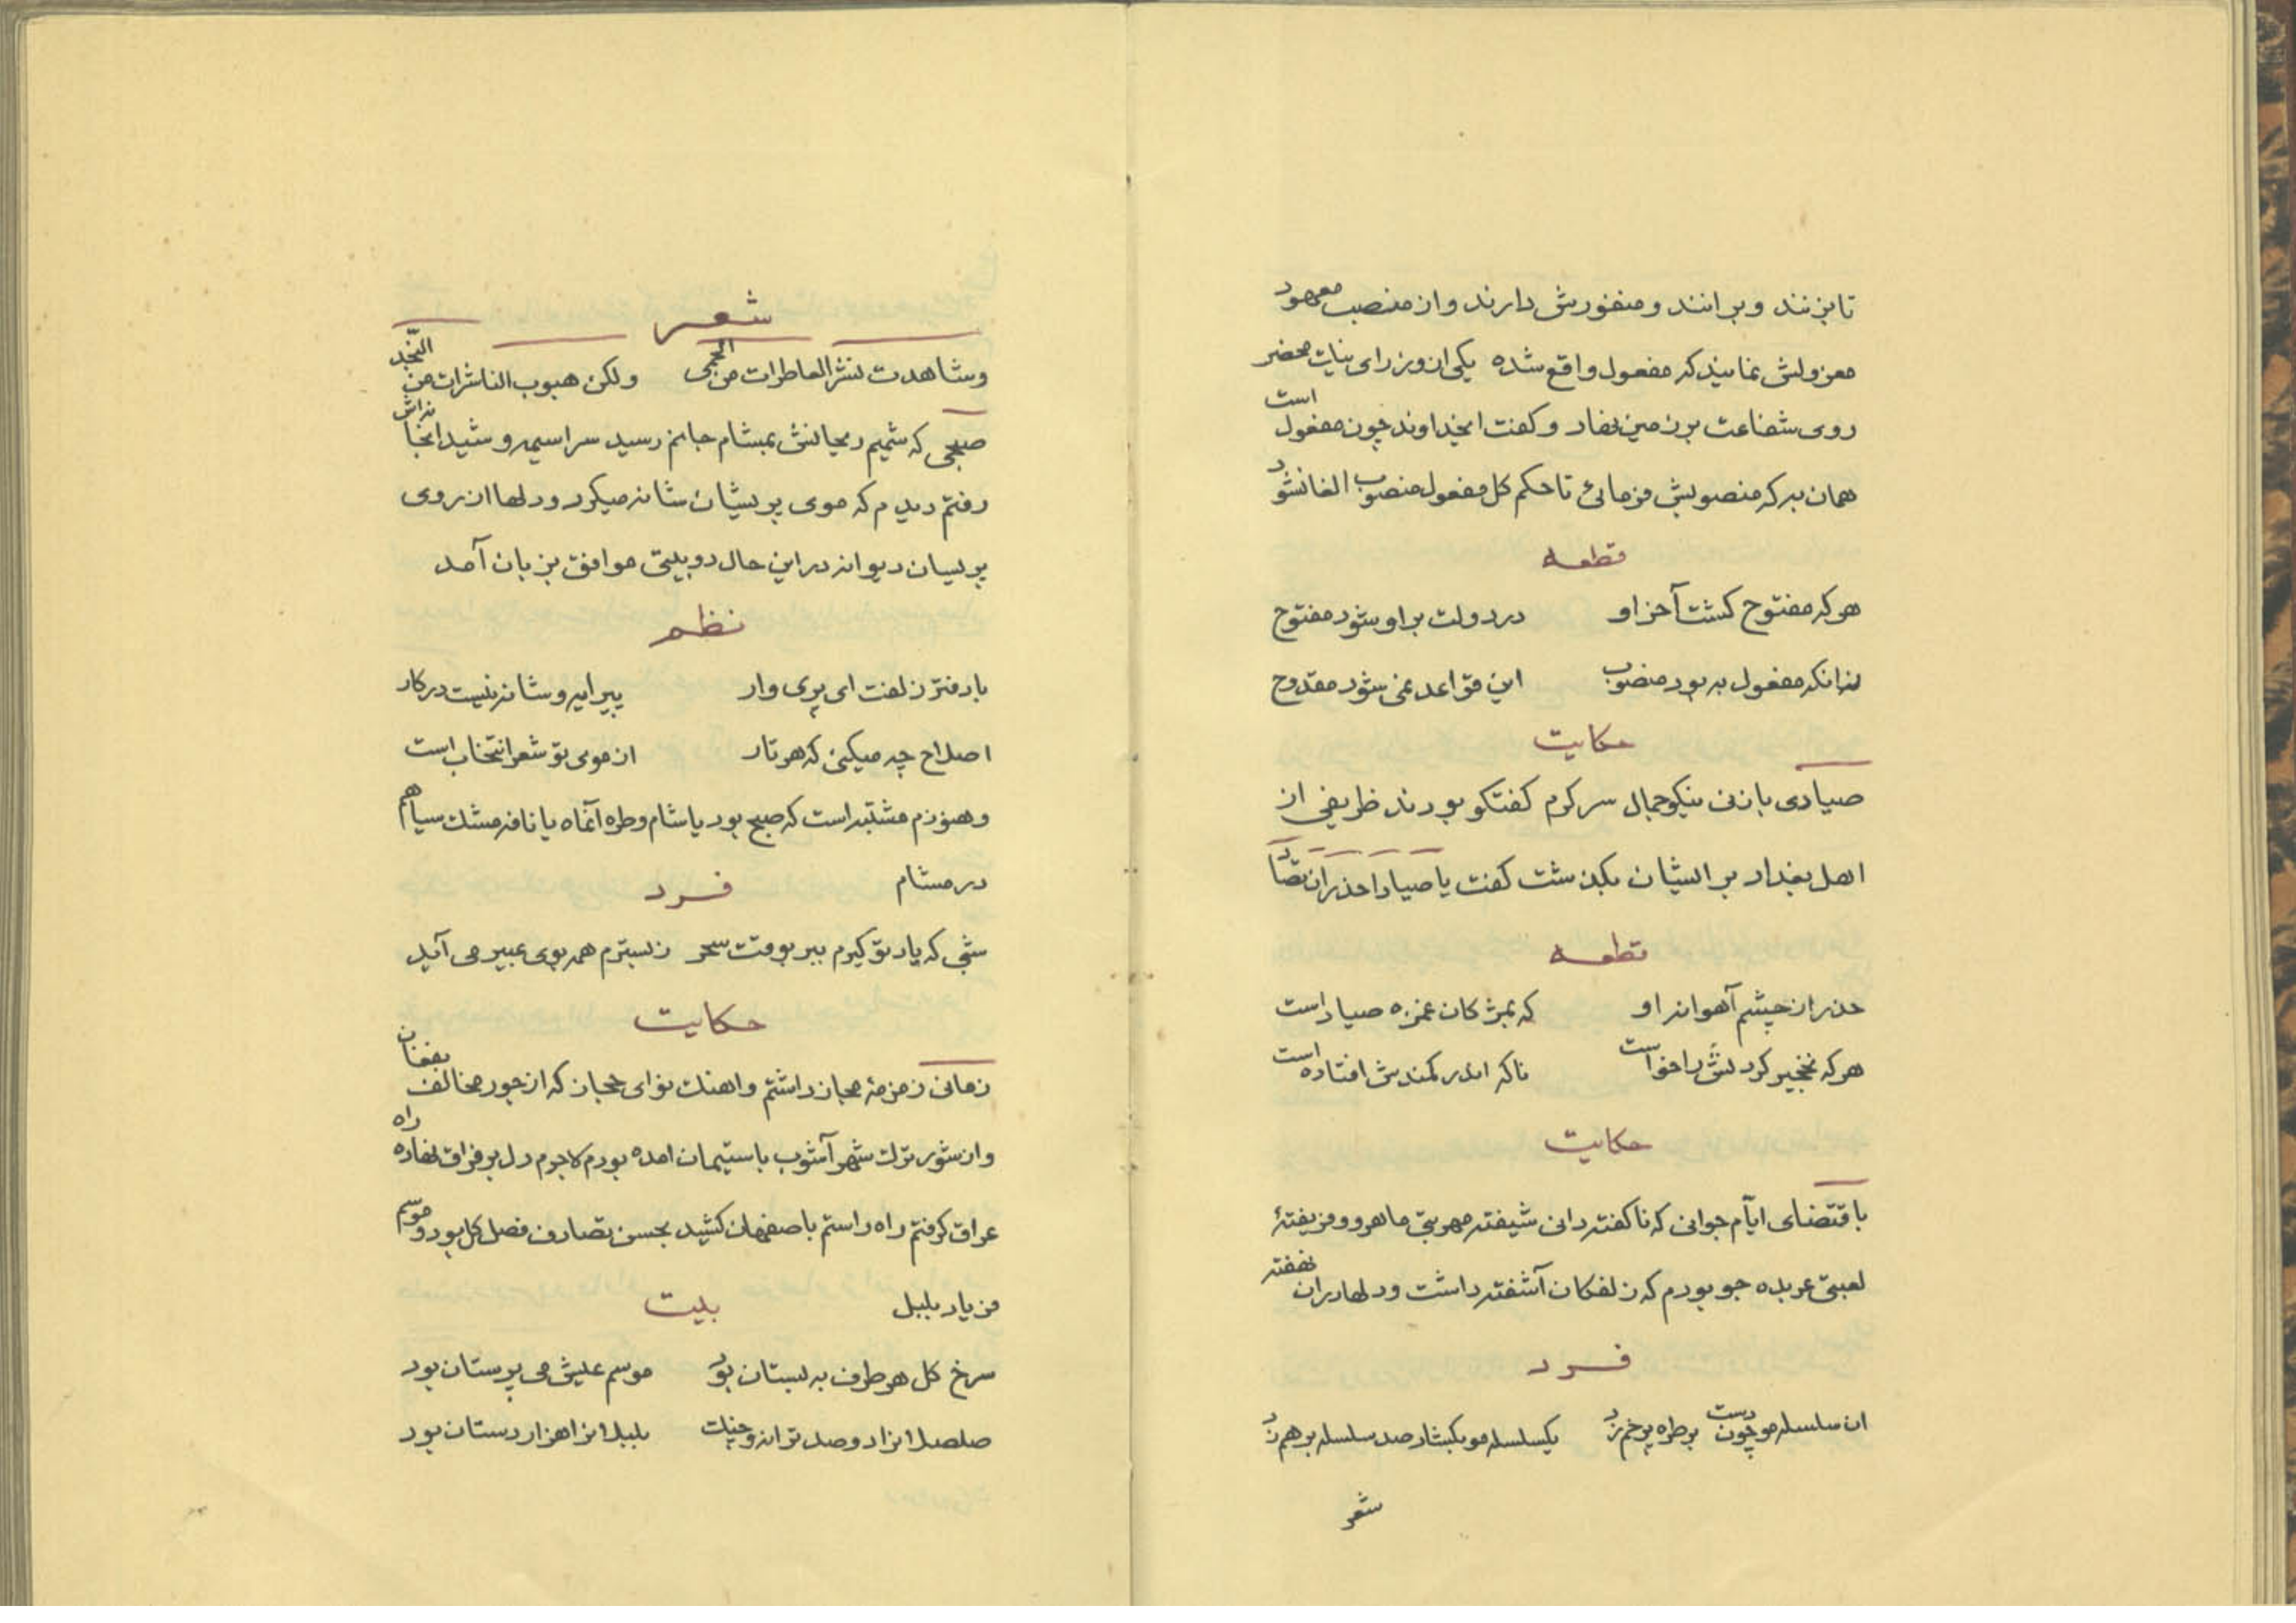 تا بزنند و برانند و منفورش دارند و از منصب معهود
معزولش نمایند که مفعول واقع شده یکی از وزرای نیات محضر
روی شفاعت بر زمین نهاد و کفت ایخداوند چون مفعول است
همان به که منصوبش فرمائی تا حکم کل مفعول منصوب الغا نشود
قطعه
هر که مفتوح کشت آخر او در دولت بر او شود مفتوح
زانکه مفعول به بود منصوب این قواعد نمی شود مقدوح
حکایت
صیادی با زنی نیکو جمال سرکرم کفتکو بودند ظریفی از
اهل بغداد بر ایشان بکذشت کفت یا صیاد احذر ان تصاد
قطعه
حذر از چشم آهوانه او که بمژکان غمزه صیاد است
هر که نخجیر کردنش را خواست ناکه اندر کمندش افتاده است
حکایت
باقتضای ایّام جوانی که ناکفته دانی شیفته مهر بتی ماهرو و فریفتهٔ
لعبتی عربده جو بودم که زلفکان آشفته داشت و دلها در ان نهفته
فرد
ان سلسله مو چون دست بر طره پر خم زد یکسلسله مو بکشاد صد سلسله بر هم زد
شعر
شعر
وشاهدت نشر العاطرات من الحمی ولکن هبوب الناشرات من النجّد
صبحی که شمیم ریحانش بمشام جانم رسید سراسیمه و شیدا بخانه اش
رفتم دیدم که موی پریشان شانه میکرد و دلها از روی
پریسان دیوانه در این حال دو بیتی موافق بزبان آمد
نظم
با دفتر زلفت ای پری وار پیرایه و شانه نیست در کار
اصلاح چه میکنی که هر تار از موی تو شعر انتخاب است
و هنوزم مشتبه است که صبح بود یا شام و طره آنماه یا نافه مشک سیاهم
در مشام
فرد
شبی که یاد تو کیرم ببر بوقت سحر ز بسترم همه بوی عبیر می آید
حکایت
زمانی زمزمهٔ مجاز داشتم و اهنک نوای حجاز که از جور مخالف بفغان
و از شور ترک شهر آشوب باستیمان امده بودم لاجرم دل بر فراق نهاده راه
عراق کرفتم راه راستم باصفهان کشید بحسن تصادف فصل کل بود و موسم
فریاد بلبل
بیت
سرخ کل هر طرف به بستان بود موسم عیش می پرستان بود
صلصل انرا دو صد ترانه و چنک بلبل انرا هزار دستان بود